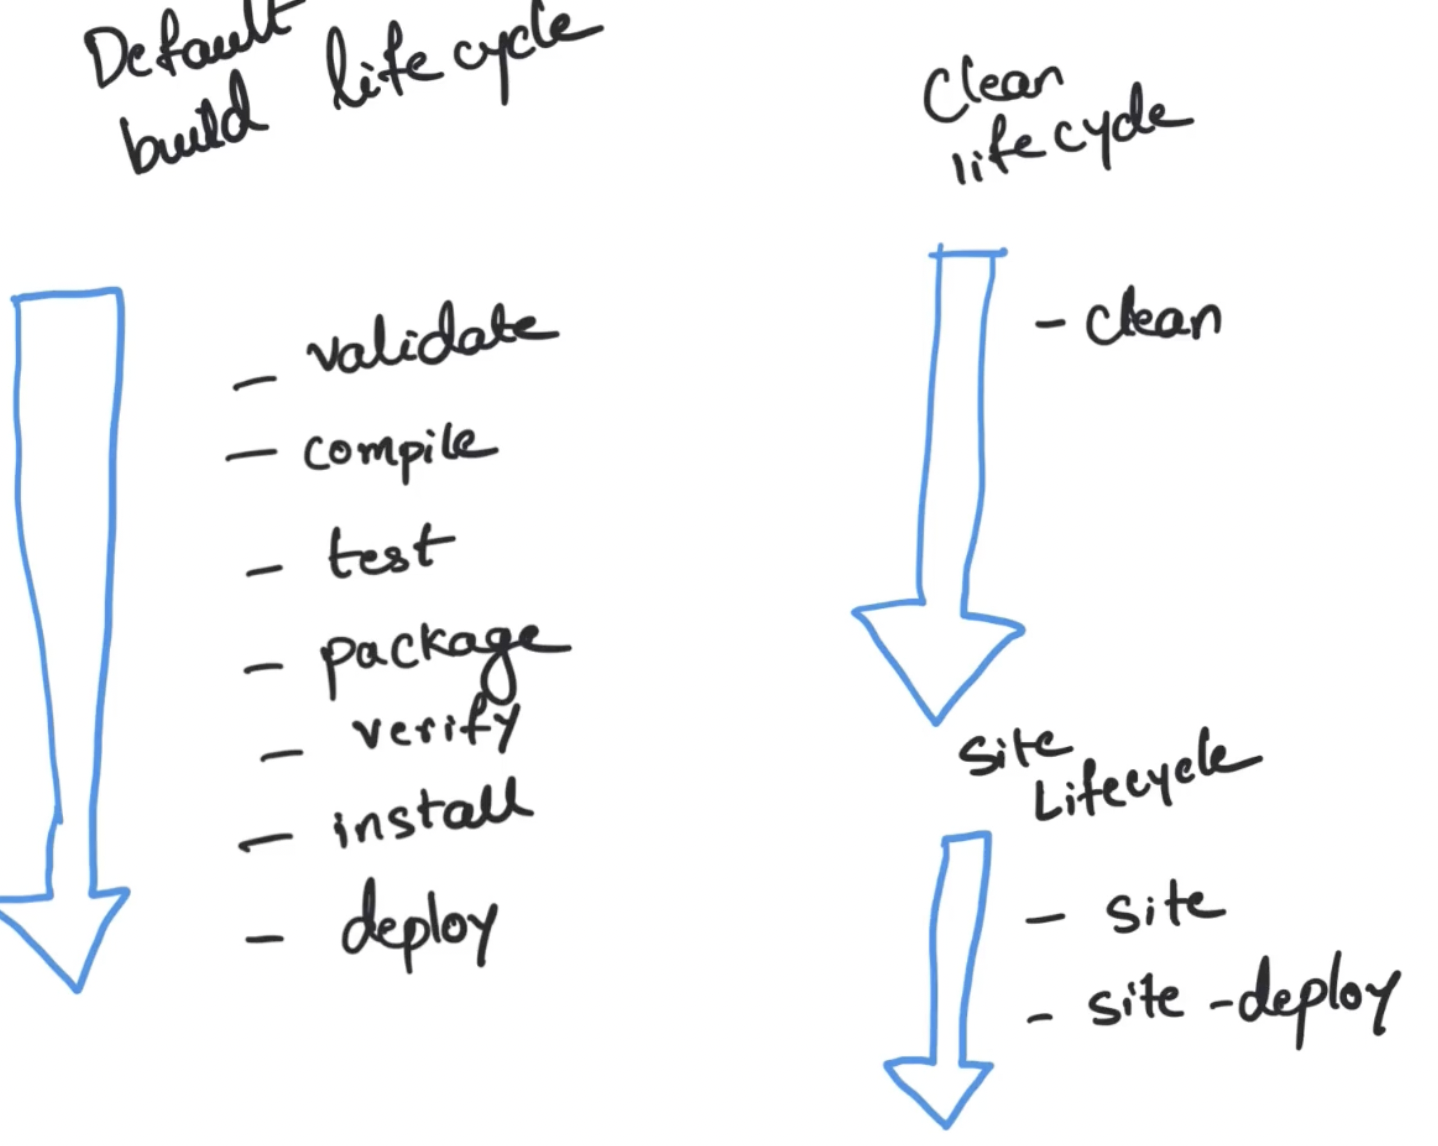 Default
build lifecycle
- validate
- compile
- test
- package
- verify
- install
- deploy
Clean
lifecycle
- clean
Site
Lifecycle
- site
- site-deploy